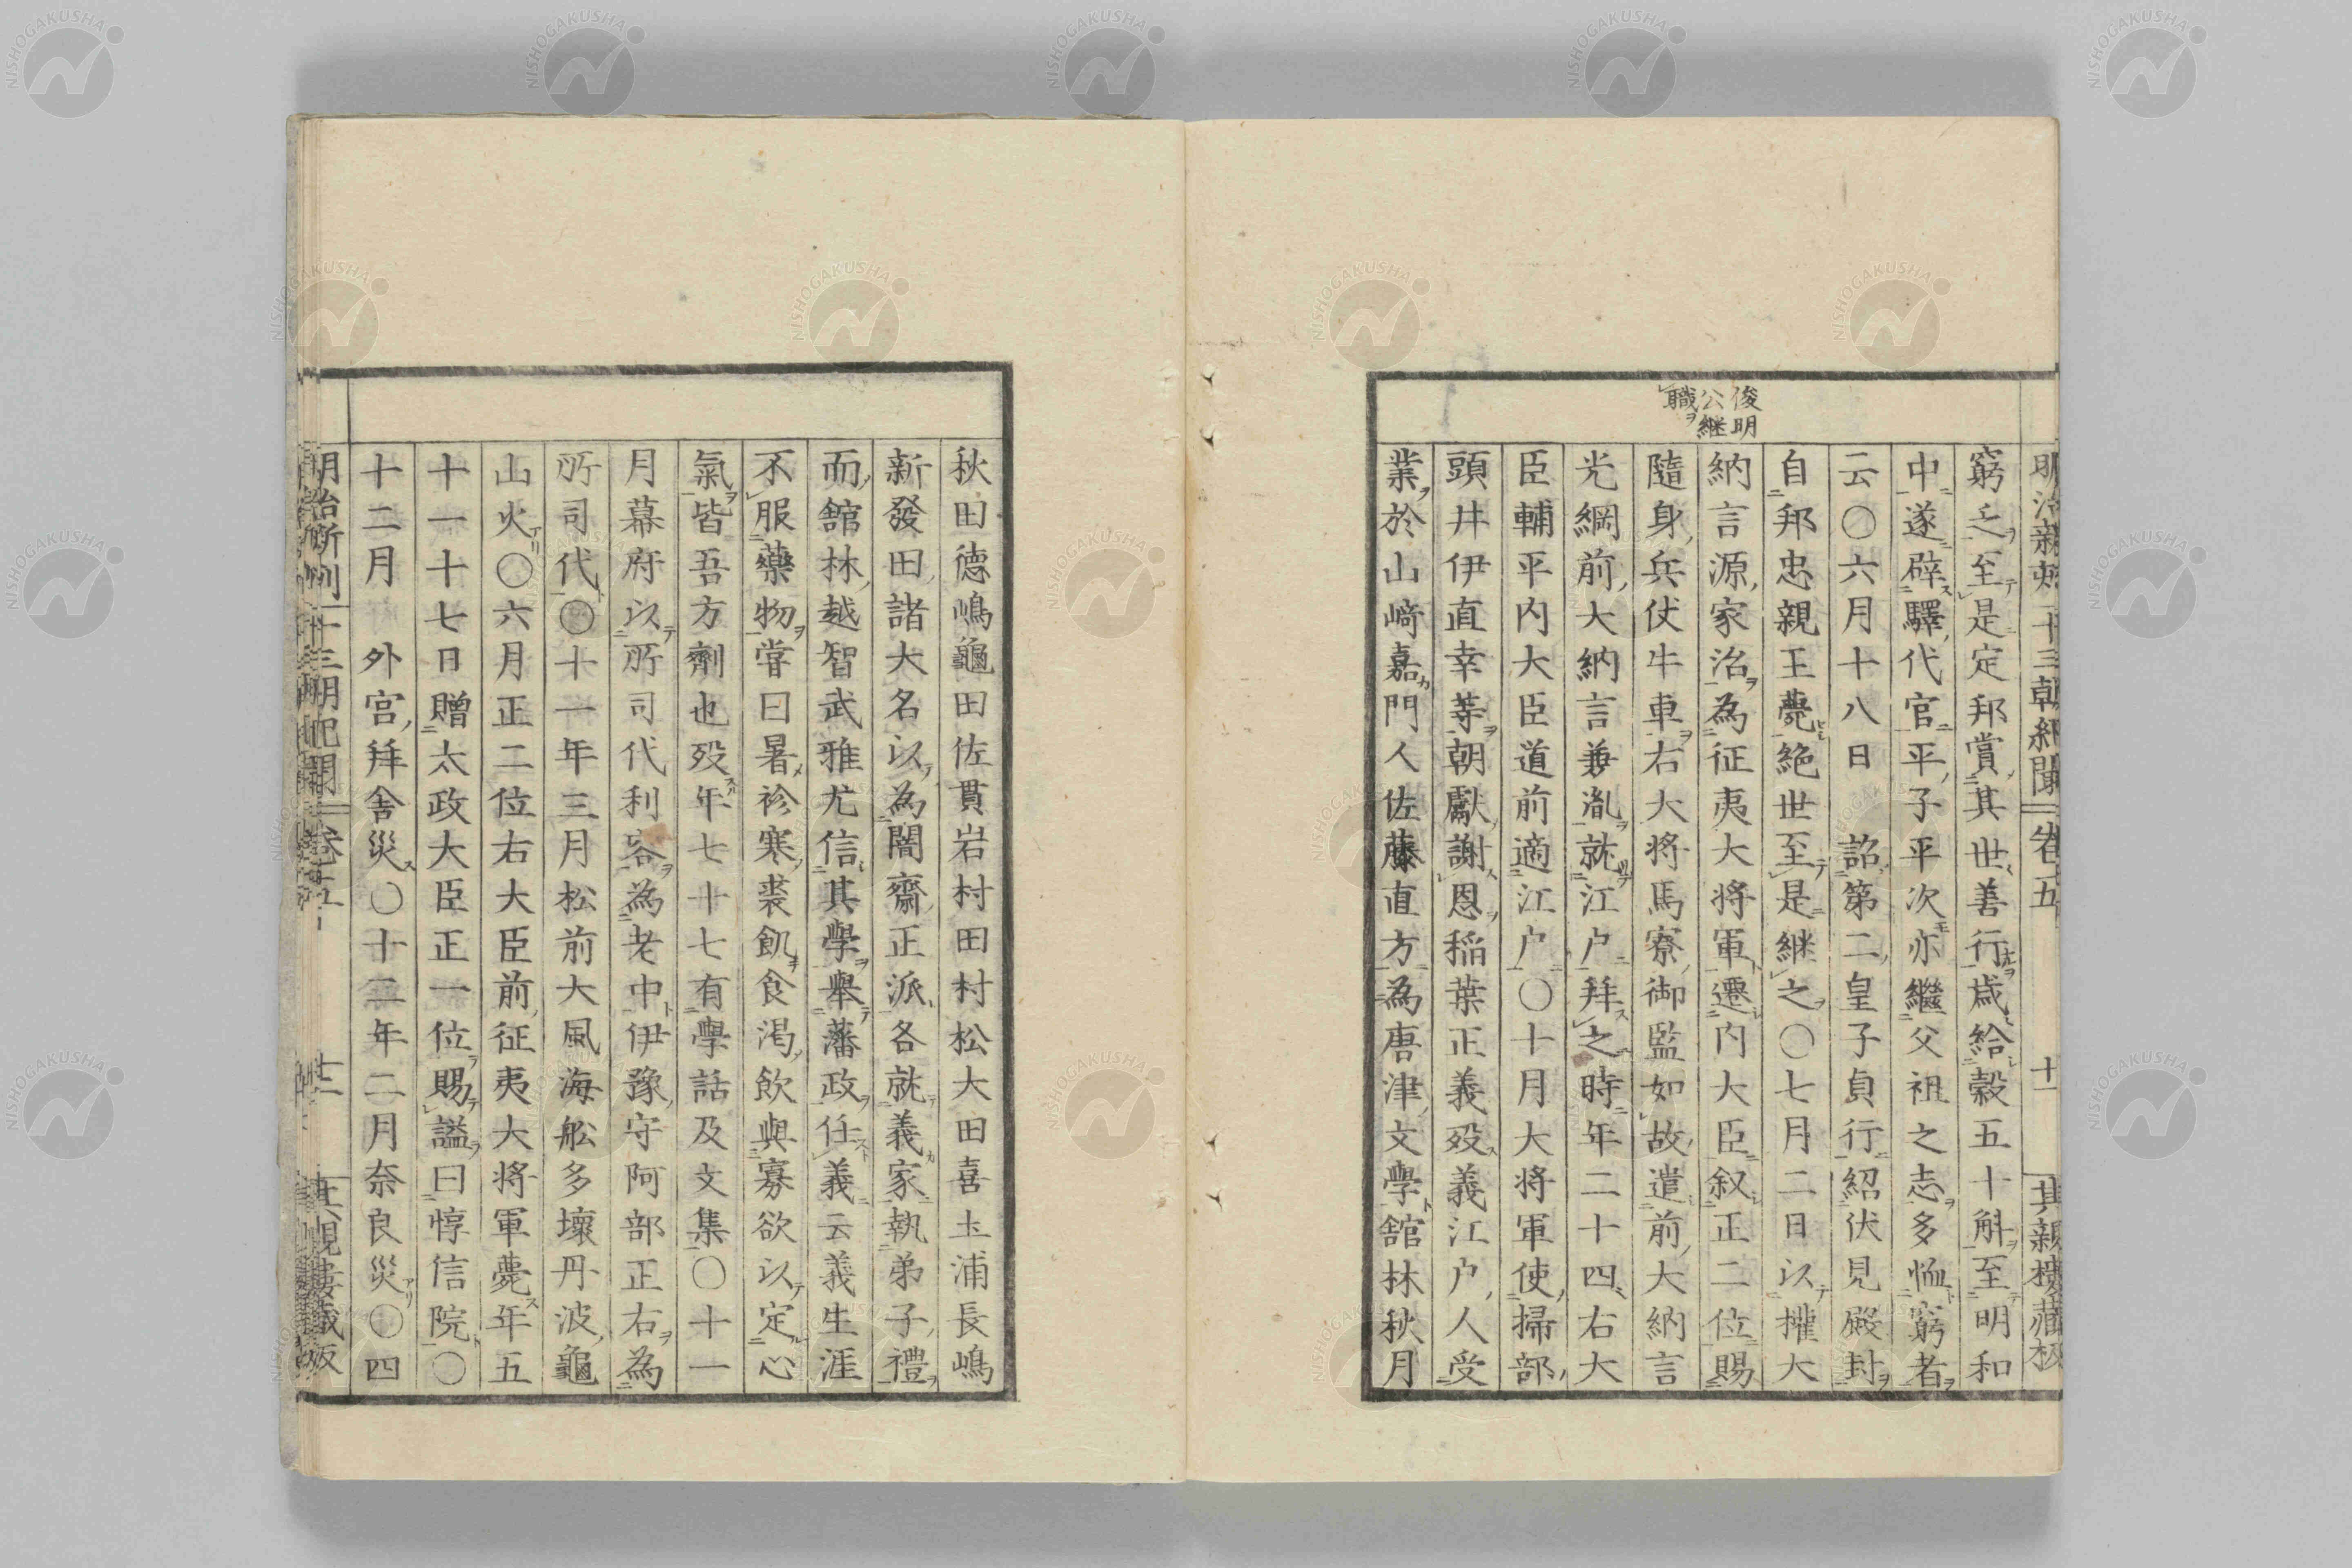 明治新刻 十三朝紀聞 卷五 十一 其親樓藏板
俊明
公継
職ヲ
窮乏至是定邦賞其世善行歳給穀五十斛至明和
中遂辟驛代官平子平次亦繼父祖之志多恤窮者
云〇六月十八日 詔第二皇子貞行紹伏見殿封
自邦忠親王薨絶世至是継之〇七月二日以權大
納言源家治為征夷大将軍遷内大臣叙正二位賜
隨身兵仗牛車右大将馬寮御監如故遣前大納言
光綱前大納言兼胤就江戸拜之時年二十四右大
臣輔平内大臣道前適江戸〇十月大将軍使掃部
頭井伊直幸等朝獻謝恩稲葉正義歿義江戸人受
業於山﨑嘉門人佐藤直方為唐津文學舘林秋月
秋田德嶋龜田佐貫岩村田村松大田喜土浦長嶋
新發田諸大名以為闇齋正派各就義家執弟子禮
而舘林越智武雅尤信其學舉藩政任義云義生涯
不服藥物甞曰暑袗寒裘飢食渇飲與寡欲以定心
氣皆吾方劑也歿年七十七有學話及文集〇十一
月幕府以所司代利容為老中伊豫守阿部正右為
所司代〇十一年三月松前大風海舩多壞丹波龜
山火〇六月正二位右大臣前征夷大将軍薨年五
十一十七日贈太政大臣正一位賜謚曰惇信院〇
十二月 外宮拜舎災〇十二年二月奈良災〇四
明治新刻 十三朝紀聞 卷五 十二 其親樓藏板
NISHOGAKUSHA